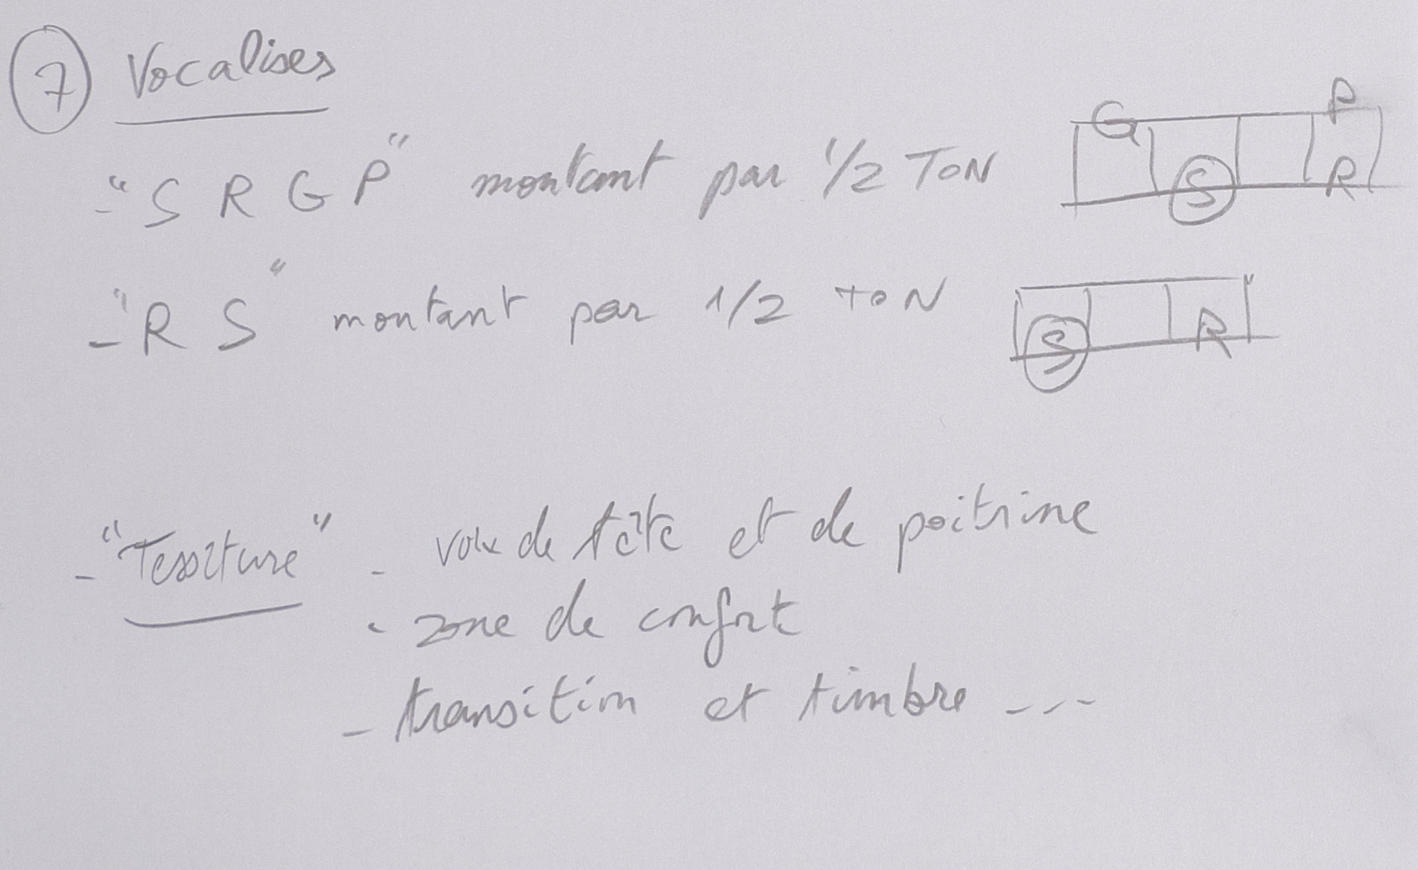 7 Vocalises
- "S R G P" montant par 1/2 TON
G P
S R
- "R S" montant par 1/2 TON
S R
- "Tessiture" - voix de tête et de poitrine
- zone de confort
- transition et timbre ---